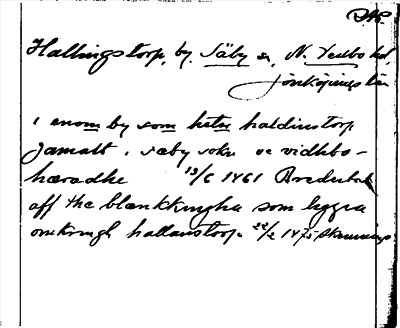 Hallingstorp, by, Säby sn, N. Vedbo hd,
Jönköpings län
i enom by som heter haldinstorp
Jamatt i sæby sokn oc vidhbo-
hæradhe 13/6 1461
aff the blænkkingha som liggia
omkringh hallanstorp. 22/2 1475